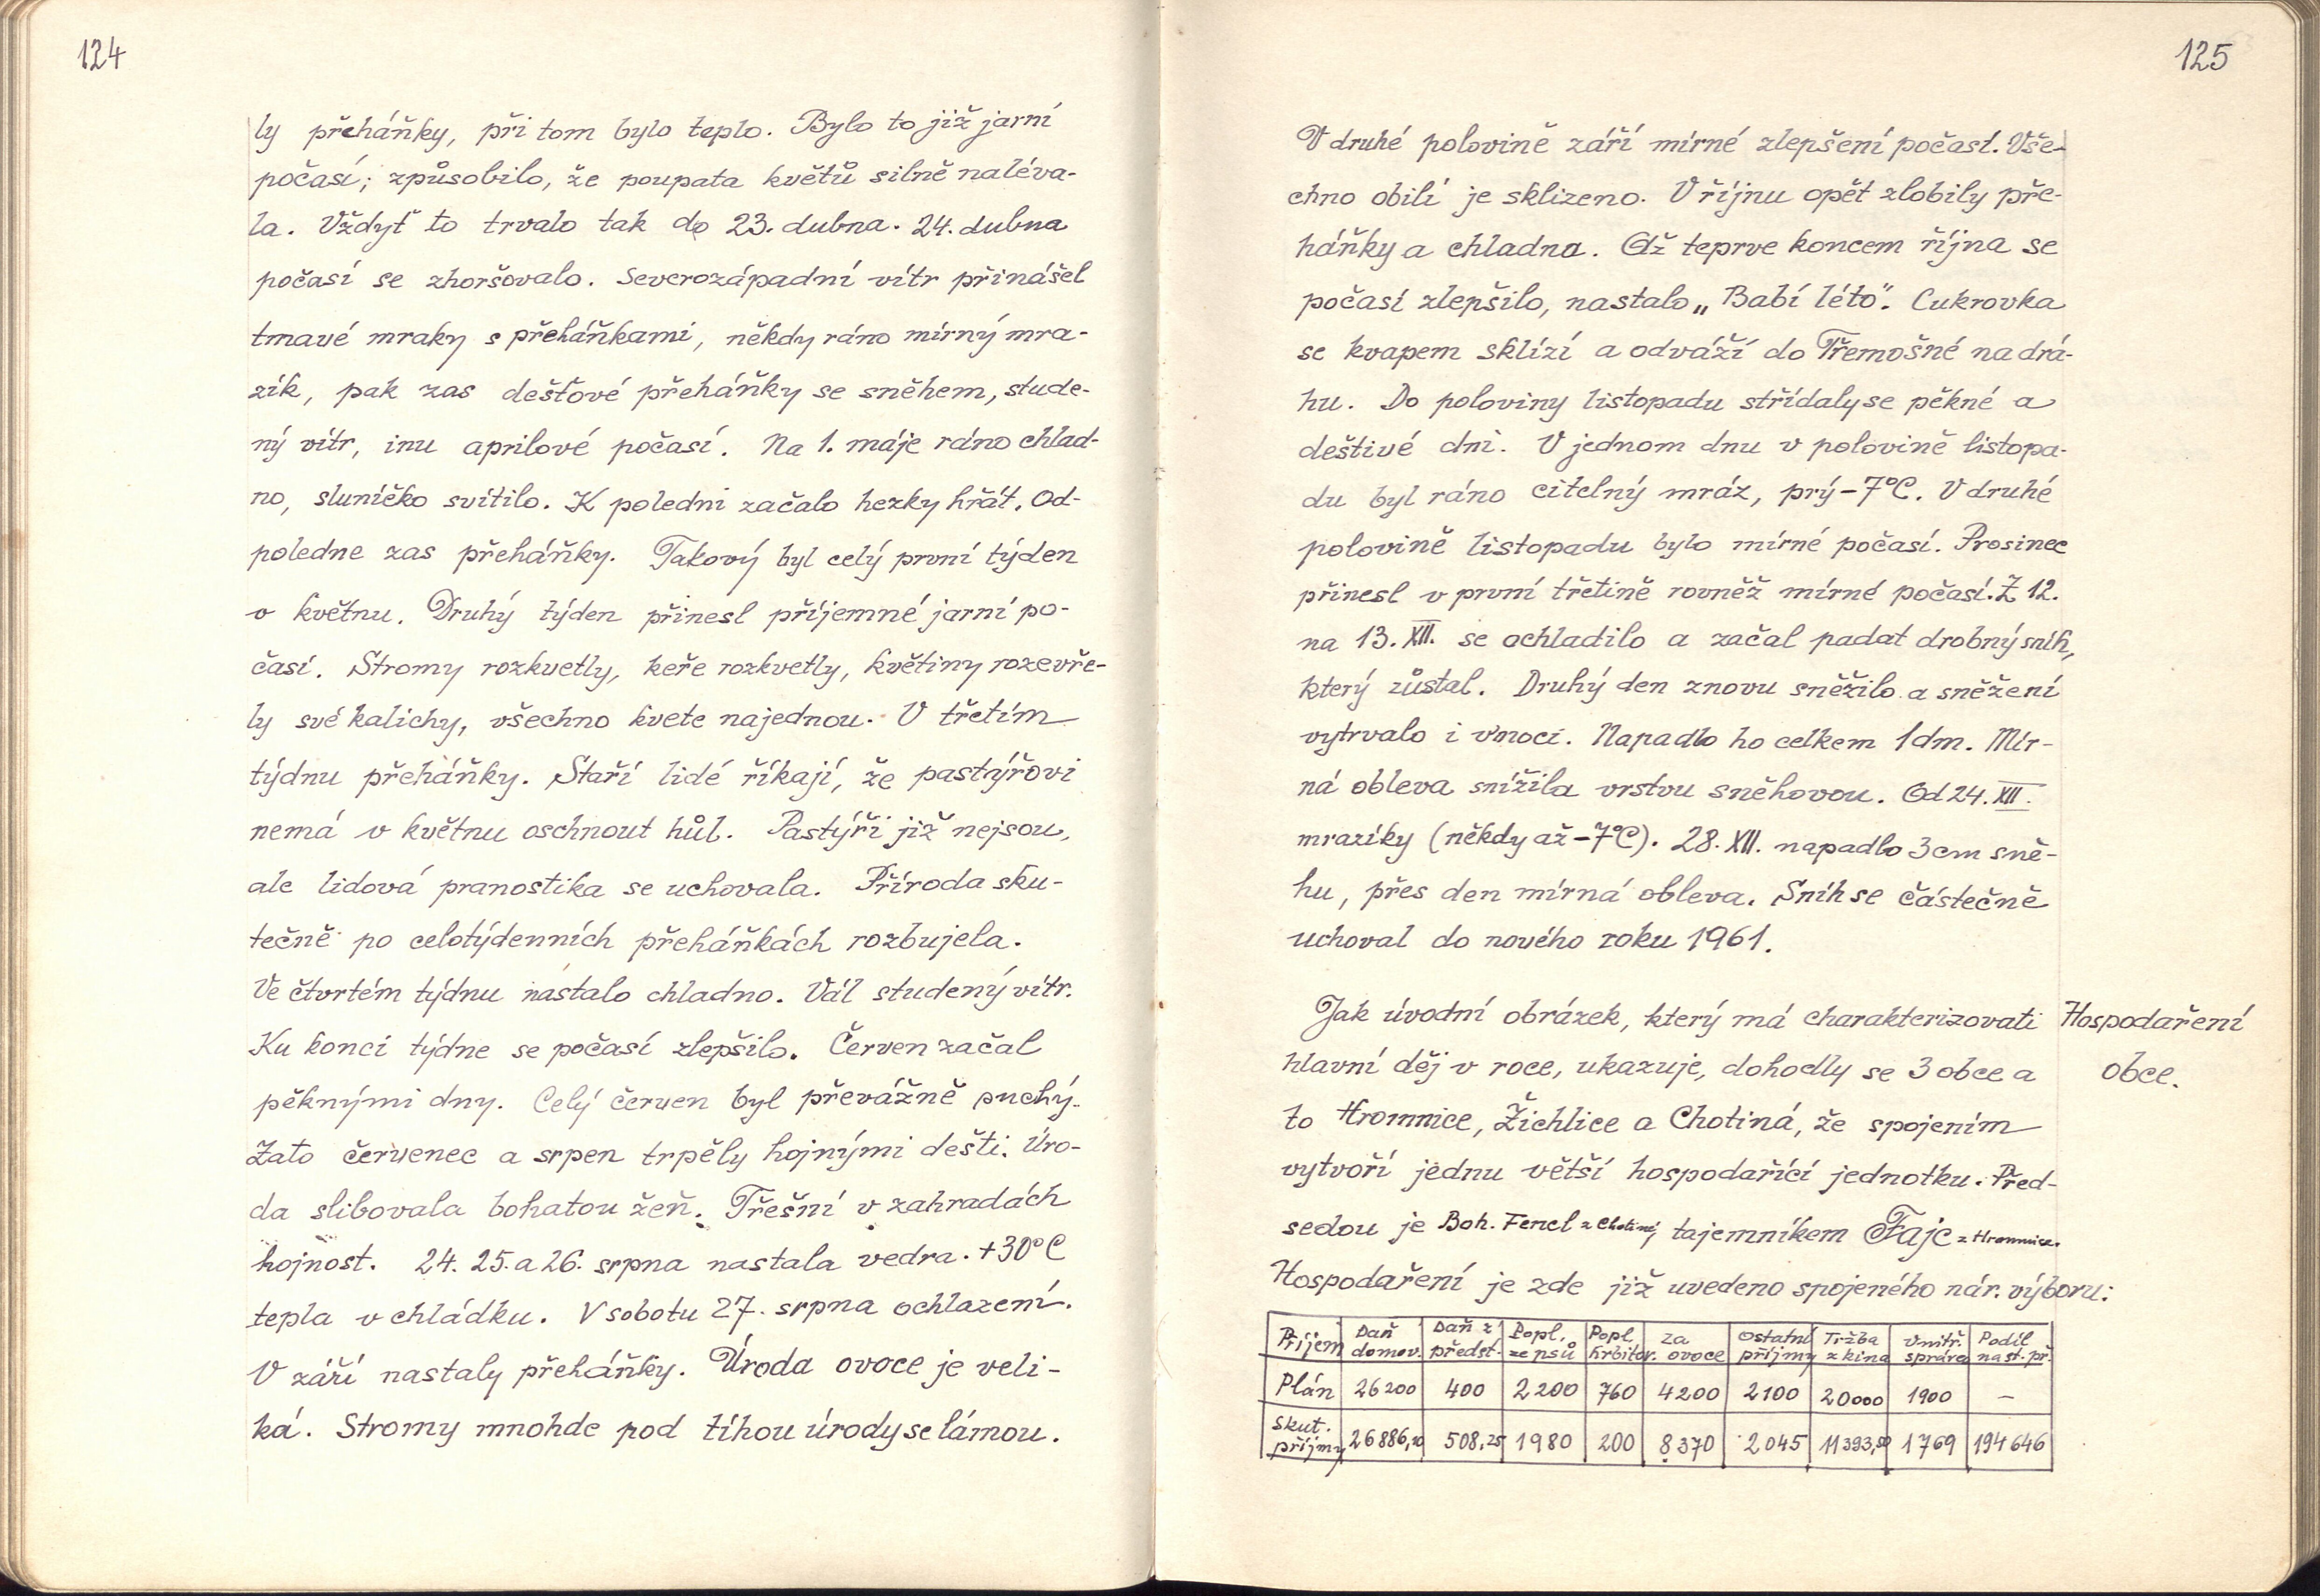 124
ly přeháňky, při tom bylo teplo. Bylo to již jarní
počasí; způsobilo, že poupata květů silně naléva-
la. Vždyť to trvalo tak do 23. dubna. 24. dubna
počasí se zhoršovalo. Severozápadní vítr přinášel
tmavé mraky s přeháňkami, někdy ráno mírný mra-
zík, pak zas dešťové přeháňky se sněhem, stude-
ný vítr, inu aprilové počasí. Na 1. máje ráno chlad-
no, sluníčko svítilo. K poledni začalo hezky hřát. Od-
poledne zas přeháňky. Takový byl celý první týden
v květnu. Druhý týden přinesl příjemné jarní po-
časí. Stromy rozkvetly, keře rozkvetly, květiny rozevře-
ly své kalichy, všechno kvete najednou. V třetím
týdnu přeháňky. Staří lidé říkají, že pastýřovi
nemá v květnu oschnout hůl. Pastýři již nejsou,
ale lidová pranostika se uchovala. Příroda sku-
tečně po celotýdenních přeháňkách rozbujela.
Ve čtvrtém týdnu nastalo chladno. Vál studený vítr.
Ku konci týdne se počasí zlepšilo. Červen začal
pěknými dny. Celý červen byl převážně suchý.
Zato červenec a srpen trpěly hojnými dešti. Úro-
da slibovala bohatou žeň. Třešní v zahradách
hojnost. 24. 25. a 26. srpna nastala vedra. +30°C
tepla v chládku. V sobotu 27. srpna ochlazení.
V září nastaly přeháňky. Úroda ovoce je veli-
ká. Stromy mnohde pod tíhou úrody se lámou.
125
V druhé polovině září mírné zlepšení počasí. Vše-
chno obilí je sklizeno. V říjnu opět zlobily pře-
háňky a chladna. Až teprve koncem října se
počasí zlepšilo, nastalo „Babí léto". Cukrovka
se kvapem sklízí a odváží do Třemošné na drá-
hu. Do poloviny listopadu střídaly se pěkné a
deštivé dni. V jednom dnu v polovině listopa-
du byl ráno citelný mráz, prý -7°C. V druhé
polovině listopadu bylo mírné počasí. Prosinec
přinesl v první třetině rovněž mírné počasí. Z 12.
na 13. XII. se ochladilo a začal padat drobný sníh,
který zůstal. Druhý den znovu sněžilo a sněžení
vytrvalo i v noci. Napadlo ho celkem 1 dm. Mír-
ná obleva snížila vrstvu sněhovou. Od 24. XII.
mrazíky (někdy až -7°C). 28. XII. napadlo 3 cm sně-
hu, přes den mírná obleva. Sníh se částečně
uchoval do nového roku 1961.
Jak úvodní obrázek, který má charakterizovati
Hospodaření
hlavní děj v roce, ukazuje, dohodly se 3 obce a
obce.
to Hromnice, Žichlice a Chotiná, že spojením
vytvoří jednu větší hospodařící jednotku. Před-
sedou je Boh. Fencl z Chotiné, tajemníkem Fajc z Hromnice.
Hospodaření je zde již uvedeno spojeného nár. výboru:
Příjem Daň domov. Daň z předst. Popl. ze psů Popl. hřbitov. za ovoce Ostatní příjmy Tržba z kina Vnitř. správa Podíl na st. př.
Plán 26200 400 2200 760 4200 2100 20000 1900 –
Skut. příjmy 26886,10 508,25 1980 200 8370 2045 11393,50 1769 194646